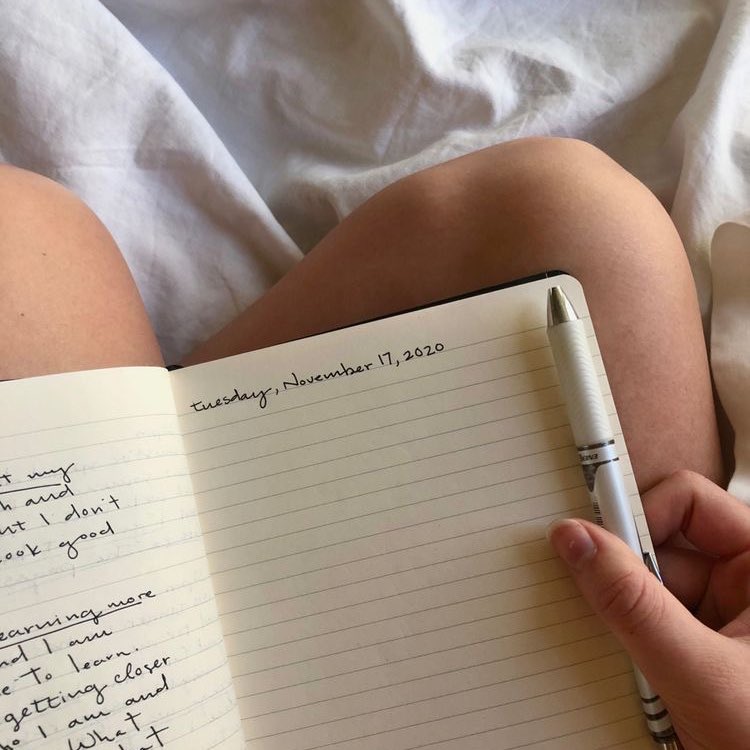 t my
h and
ut I don't
ook good
earning more
nd I am
e to learn.
getting closer
ho I am and
What
hat
tuesday, November 17, 2020